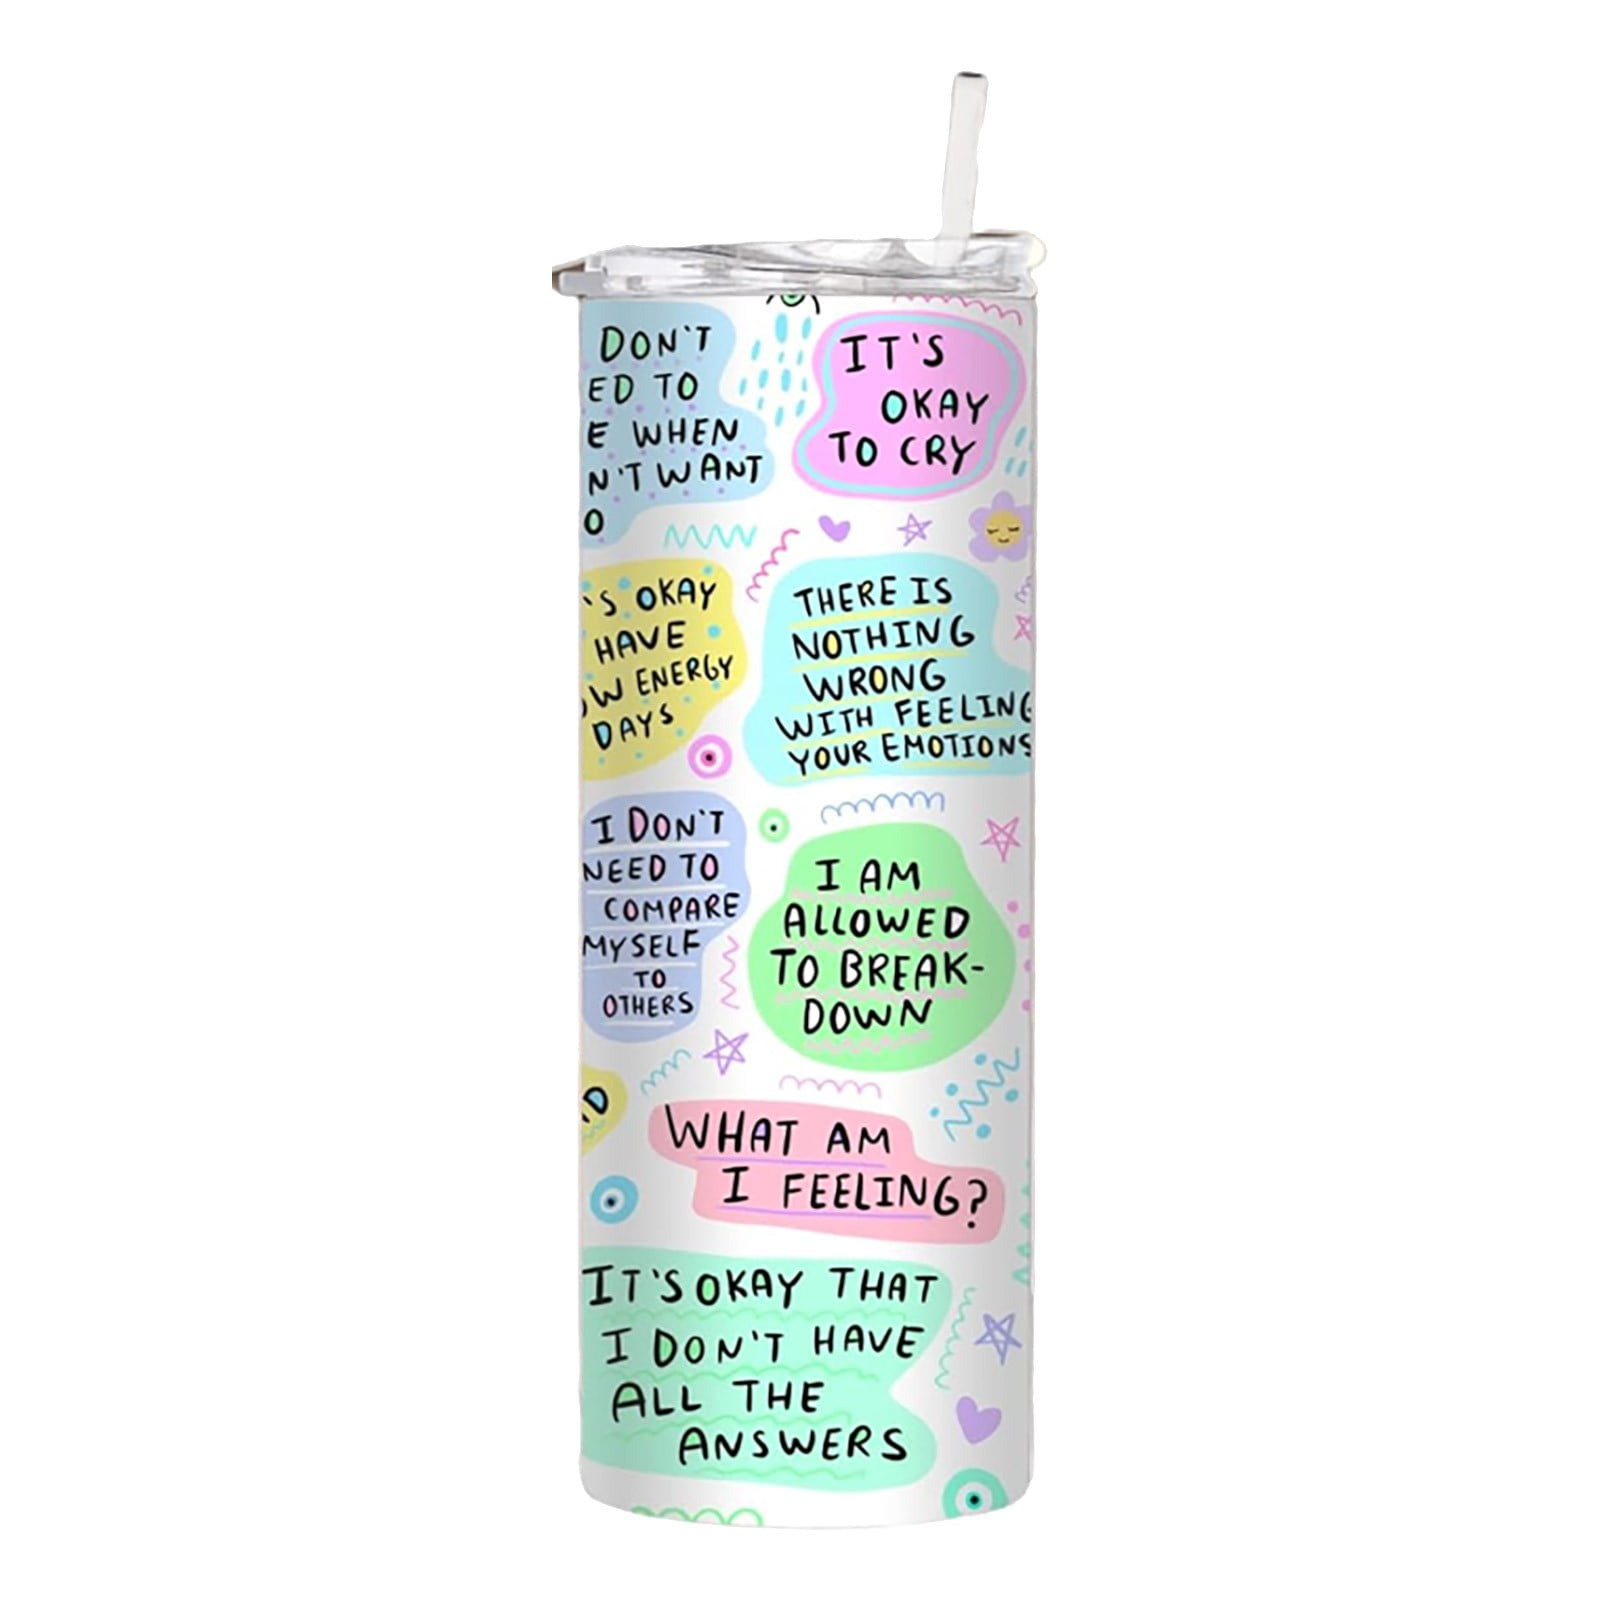 DON'T
ED TO
E WHEN
N'T WANT
O
IT'S
OKAY
TO CRY
'S OKAY
HAVE
OW ENERGY
DAYS
THERE IS
NOTHING
WRONG
WITH FEELING
YOUR EMOTIONS
I DON'T
NEED TO
COMPARE
MYSELF
TO
OTHERS
I AM
ALLOWED
TO BREAK-
DOWN
WHAT AM
I FEELING?
IT'S OKAY THAT
I DON'T HAVE
ALL THE
ANSWERS